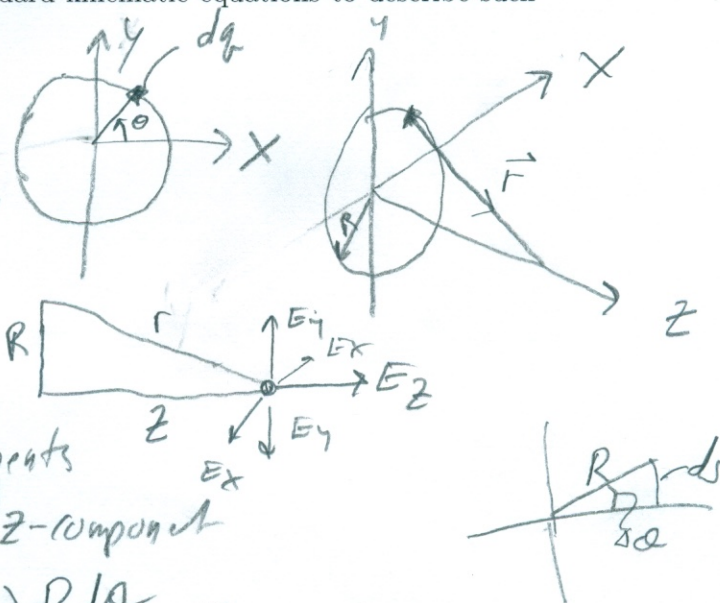 dard kinematic equations to describe such
y
dq
y
X
θ
X
r
R
Z
R
r
Ey
Ex
Ez
z
Ey
Ex
ents
R
ds
Z-component
Δθ